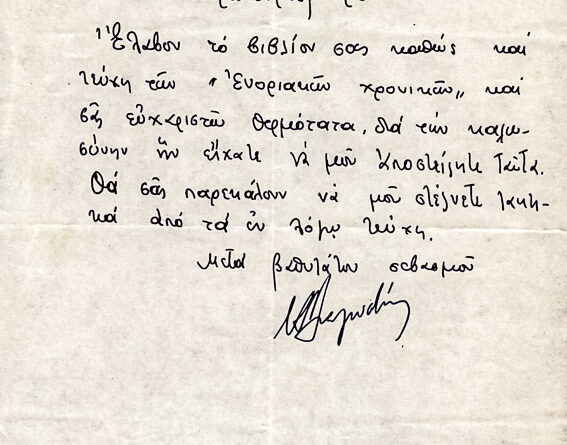 Ἔλαβον τό βιβλίον σας καθώς καί
τεύχη τῶν "Ἐνοριακῶν χρονικῶν" καί
σᾶς εὐχαριστῶ θερμότατα, διά τήν καλω-
σύνην ἥν εἴχατε νά μοῦ ἀποστείλητε ταῦτα.
Θά σᾶς παρεκάλουν νά μοῦ στέλνετε τακτι-
κά ἀπό τά ἐν λόγῳ τεύχη.
Μετά βαθυτάτου σεβασμοῦ